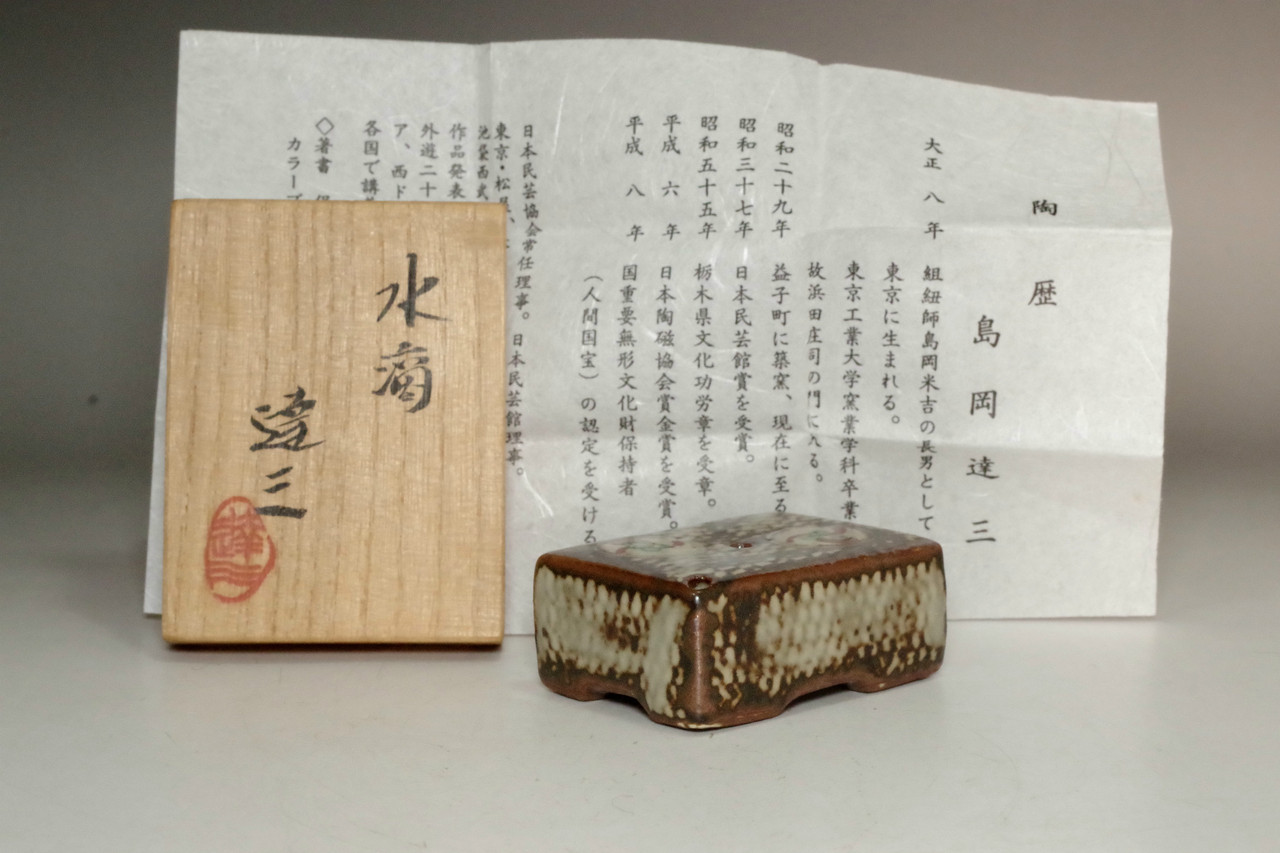 陶 歴
島岡達三
大正 八 年 組紐師島岡米吉の長男として
東京に生まれる。
東京工業大学窯業学科卒業
故浜田庄司の門に入る。
昭和二十九年 益子町に築窯、現在に至る
昭和三十七年 日本民芸館賞を受賞。
昭和五十五年 栃木県文化功労章を受章。
平成 六 年 日本陶磁協会賞金賞を受賞。
平成 八 年 国重要無形文化財保持者
（人間国宝）の認定を受ける
日本民芸協会常任理事。日本民芸館理事。
東京・松屋、
池袋西武
作品発表
外遊二十
ア、西ド
各国で講
◇著書
カラーブ
水滴
達三
達三